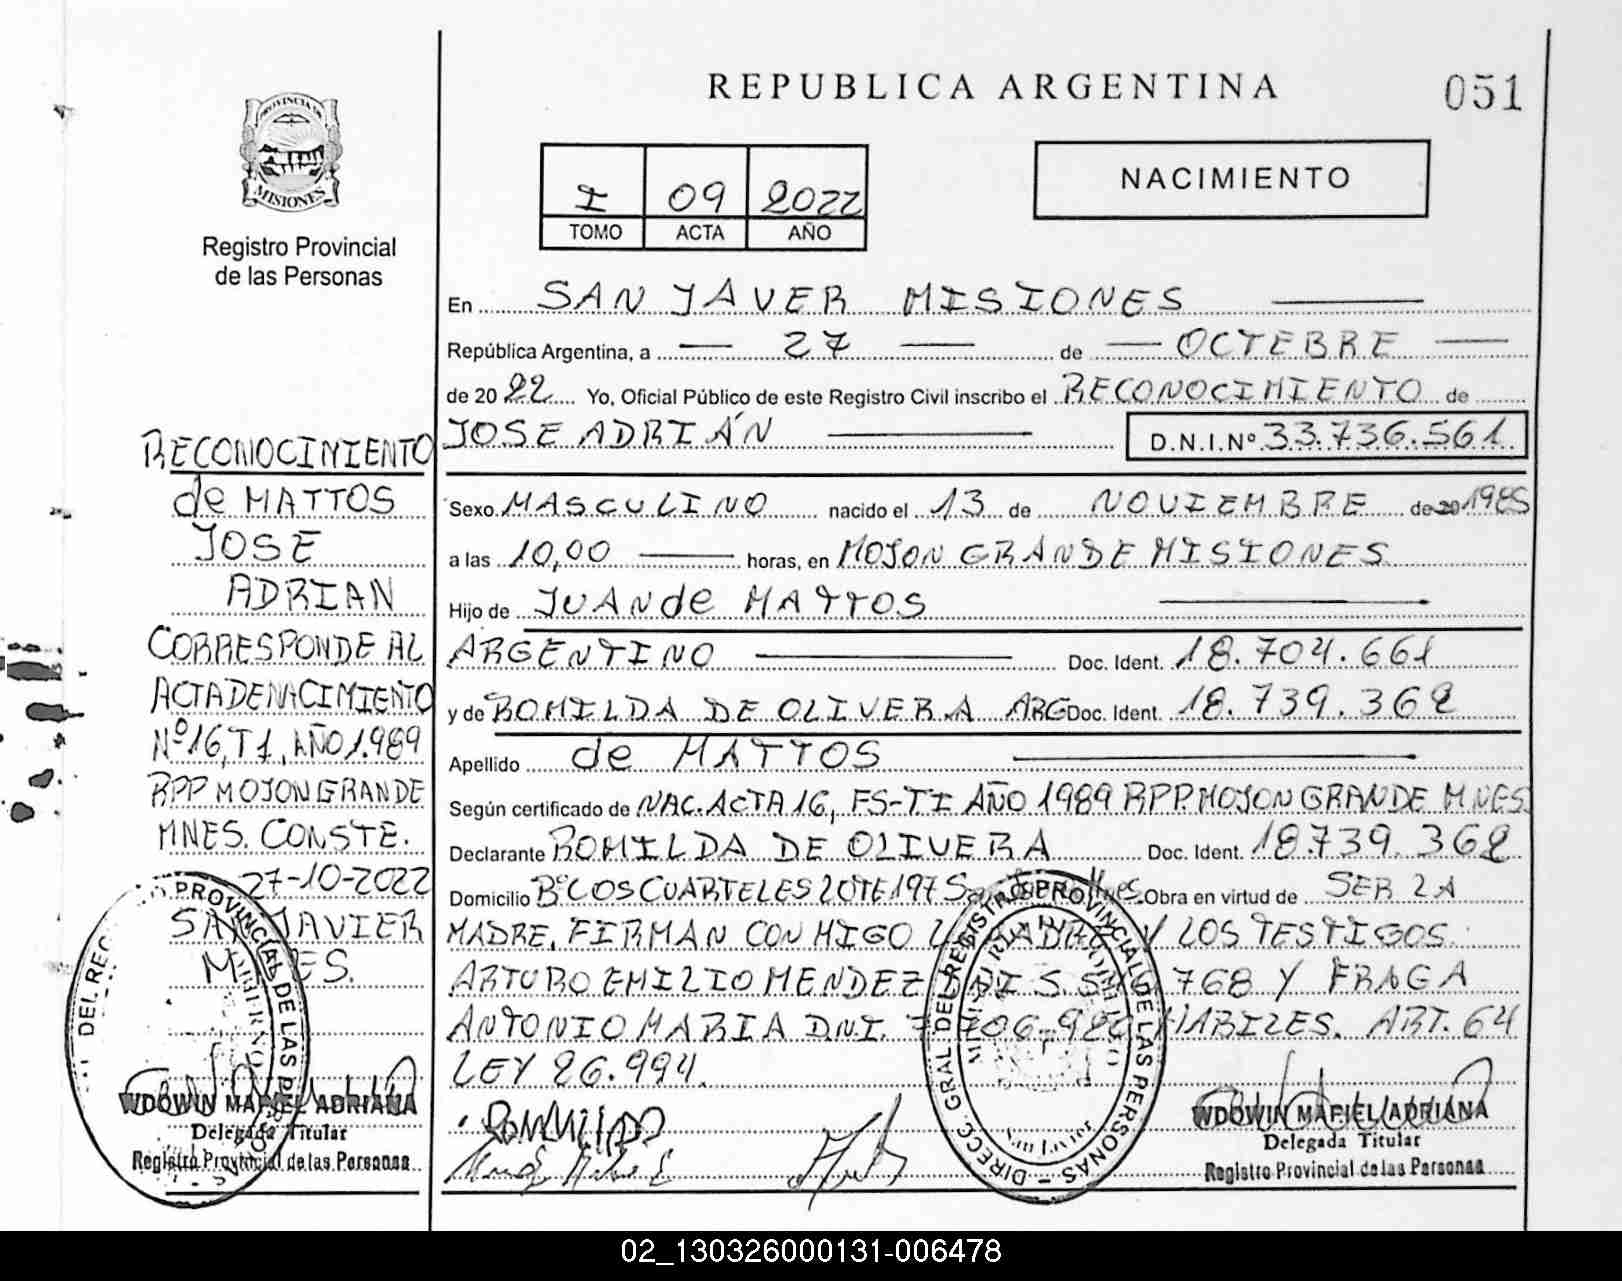 REPUBLICA ARGENTINA
051
PROVINCIA DE
MISIONES
Registro Provincial
de las Personas
I 09 2022
TOMO ACTA AÑO
NACIMIENTO
En SAN JAVIER MISIONES
República Argentina, a 27 de OCTUBRE
de 20 22 Yo, Oficial Público de este Registro Civil inscribo el RECONOCIMIENTO de
JOSE ADRIÁN D.N.I.Nº 33.736.561
Sexo MASCULINO nacido el 13 de NOVIEMBRE de 20 1985
a las 10,00 horas, en MOJON GRANDE MISIONES
Hijo de JUAN de MATTOS
ARGENTINO Doc. Ident. 18.704.661
y de ROMILDA DE OLIVERA ARG Doc. Ident. 18.739.362
Apellido de MATTOS
Según certificado de NAC. ACTA 16, FS-TI AÑO 1989 RPP. MOJON GRANDE MNES
Declarante ROMILDA DE OLIVERA Doc. Ident. 18.739.362
Domicilio Bº LOS CUARTELES LOTE 197 Obra en virtud de SER LA
MADRE. FIRMAN CONMIGO Y LOS TESTIGOS
ARTURO EMILIO MENDEZ 768 Y FRAGA
ANTONIO MARIA DNI. HABILES. ART. 64
LEY 26.994.
RECONOCIMIENTO
de MATTOS
JOSE
ADRIAN
CORRESPONDE AL
ACTA DE NACIMIENTO
Nº 16, T1, AÑO 1.989
RPP MOJON GRANDE
MNES. CONSTE.
27-10-2022
SAN JAVIER
MNES.
WDOWIN MARIEL ADRIANA
Delegada Titular
Registro Provincial de las Personas
DIRECC. GRAL DEL REGISTRO PROVINCIAL DE LAS PERSONAS
San Javier
WDOWIN MARIEL ADRIANA
Delegada Titular
Registro Provincial de las Personas
02_130326000131-006478